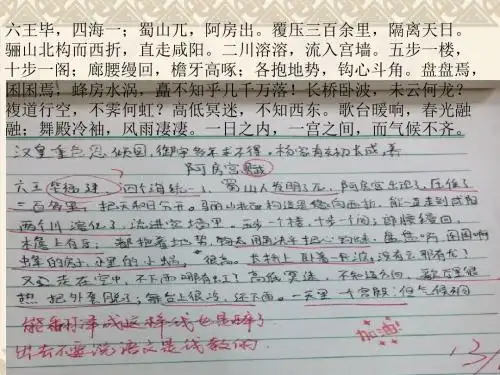 六王毕，四海一；蜀山兀，阿房出。覆压三百余里，隔离天日。
骊山北构而西折，直走咸阳。二川溶溶，流入宫墙。五步一楼，
十步一阁；廊腰缦回，檐牙高啄；各抱地势，钩心斗角。盘盘焉，
囷囷焉，蜂房水涡，矗不知乎几千万落！长桥卧波，未云何龙？
複道行空，不霁何虹？高低冥迷，不知西东。歌台暖响，春光融
融；舞殿冷袖，风雨凄凄。一日之内，一宫之间，而气候不齐。
汉皇重色思倾国，御宇多年求不得。杨家有女初长成，养
阿房宫赋
六王 四海统一了，蜀山人发明了兀，阿房宫出现了，压住了
三百多里，把天和日分开。骊山北边构造是像向西折，能一直走到咸阳
两个川溶化了，流进宫墙里。五步一个楼，十步一阁；
都抱着地势，
虫草的房子，水里的小蜗， 很高。长桥上卧着 波，没有云那有龙？
又 走在空中，不下雨哪有虹？高低冥迷，不知道方向，歌台里很
把外 舞台上很冷，还下雨。一天里一个宫殿，但气候不同
能翻译成这样我也是醉了
出去不要说语文是我教的
加油！